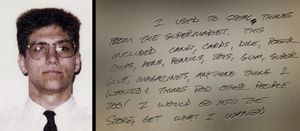 I USED TO STEAL THINGS
FROM THE SUPERMARKET. THIS
INCLUDED CANDY, CARDS, DICE, POKER
CHIPS, PENS, PENCILS, TOYS, GUM, SUPER
GLUE, MAGAZINES, ANYTHING THING I
WANTED & THINGS FOR OTHER PEOPLE
TOO! I WOULD GO INTO THE
STORE, GET WHAT I WANTED